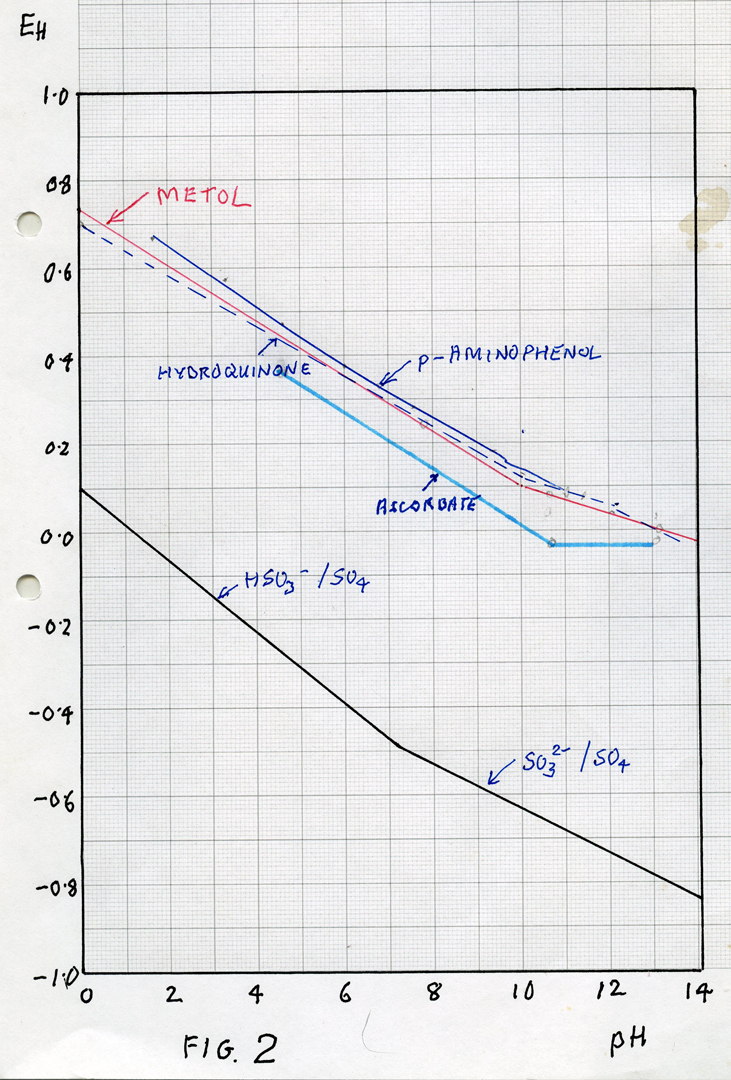 EH
1.0
0.8
METOL
0.6
0.4
P-AMINOPHENOL
HYDROQUINONE
0.2
ASCORBATE
0.0
HSO3⁻/SO4
-0.2
-0.4
SO3²⁻/SO4
-0.6
-0.8
-1.0
0 2 4 6 8 10 12 14
FIG. 2 pH